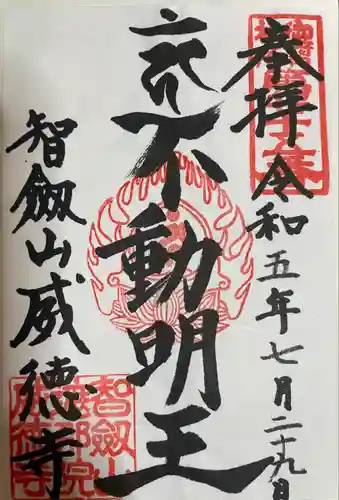 奉拝
令和五年七月二十九日
不動明王
智劔山威徳寺